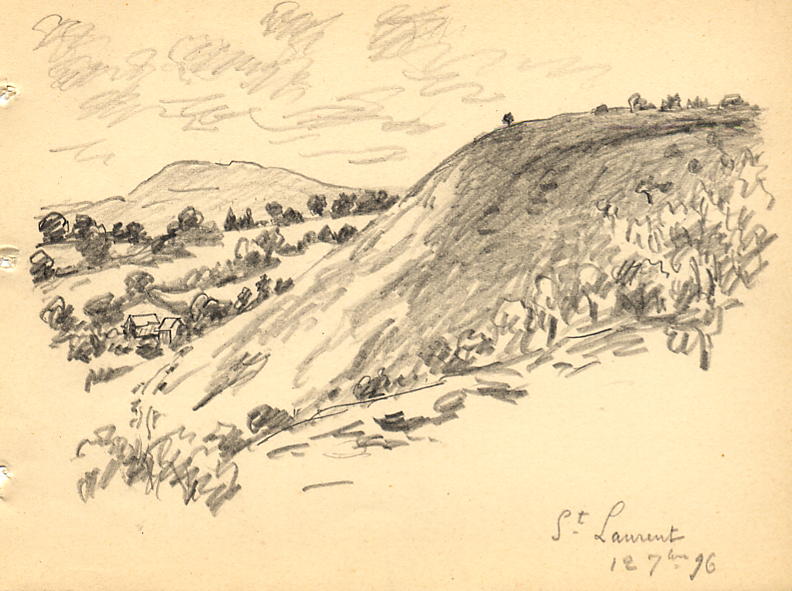 St Laurent
12 7bre 96